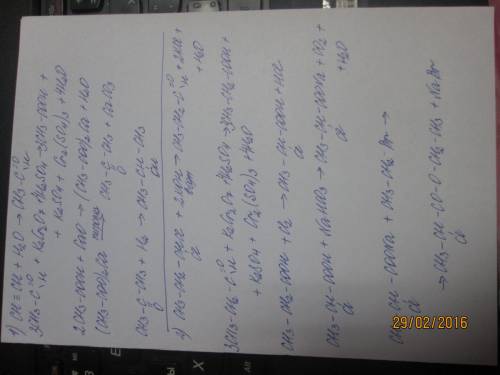 1) CH≡CH + H2O → CH3-C=O\H
3CH3-C=O\H + K2Cr2O7 + 4H2SO4 → 3CH3-COOH +
+ K2SO4 + Cr2(SO4)3 + 4H2O
2CH3-COOH + CaO → (CH3-COO)2Ca + H2O
(CH3-COO)2Ca → CH3-C-CH3 + CaCO3
O
CH3-C-CH3 + H2 → CH3-CH-CH3
O OH
2) CH3-CH2-CHCl + 2KOH → CH3-CH2-C=O\H + 2KCl +
Cl + H2O
3CH3-CH2-C=O\H + K2Cr2O7 + 4H2SO4 → 3CH3-CH2-COOH +
+ K2SO4 + Cr2(SO4)3 + 4H2O
CH3-CH2-COOH + Cl2 → CH3-CH-COOH + HCl
Cl
CH3-CH-COOH + NaHCO3 → CH3-CH-COONa + CO2 +
Cl Cl + H2O
CH3-CH-COONa + CH3-CH2-Br →
Cl
→ CH3-CH-CO-O-CH2-CH3 + NaBr
Cl
29/02/2016